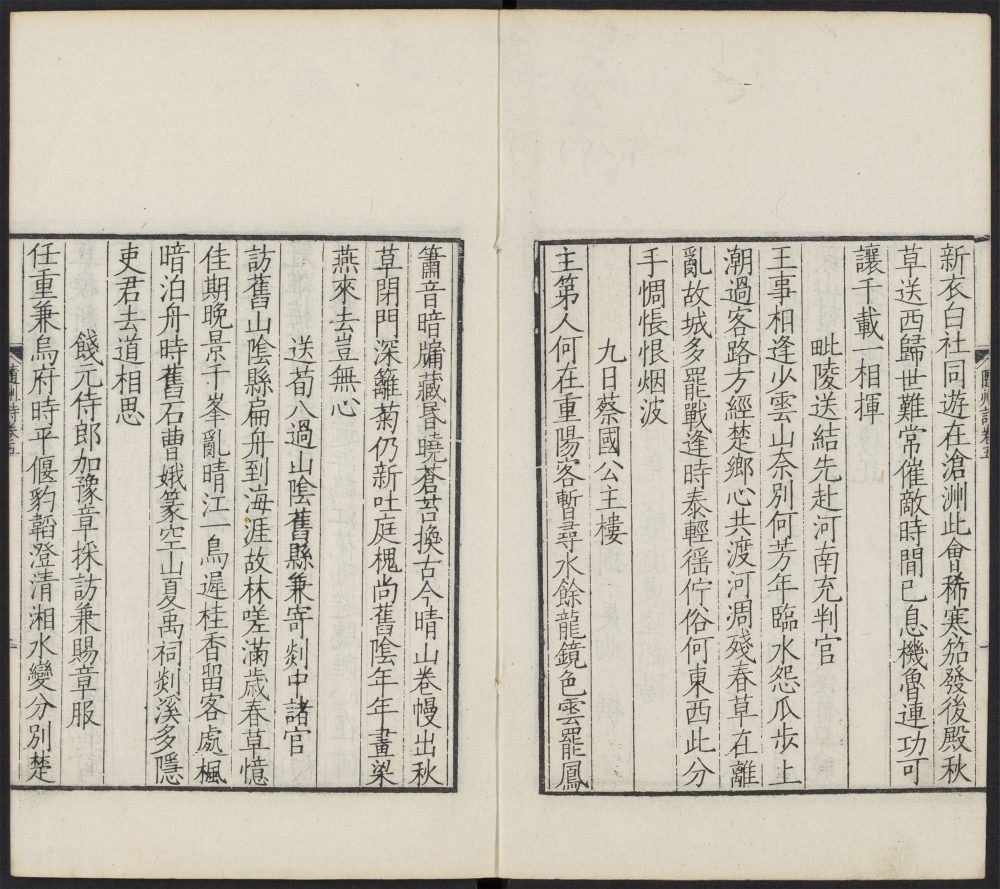 新衣白社同遊在滄洲此會稀寒笳發後殿秋
草送西歸世難常催敵時閒已息機魯連功可
讓千載一相揮
毗陵送結先赴河南充判官
王事相逢少雲山奈別何芳年臨水怨瓜步上
潮過客路方經楚鄉心共渡河凋殘春草在離
亂故城多罷戰逢時泰輕徭佇俗何東西此分
手惆悵恨烟波
九日蔡國公主樓
主第人何在重陽客暫尋水餘龍鏡色雲罷鳳
簫音暗牖藏昏曉蒼苔換古今晴山卷幔出秋
草閉門深籬菊仍新吐庭槐尚舊陰年年畫梁
燕來去豈無心
送荀八過山陰舊縣兼寄剡中諸官
訪舊山陰縣扁舟到海涯故林嗟滿歲春草憶
佳期晚景千峯亂晴江一鳥遲桂香留客處楓
暗泊舟時舊石曹娥篆空山夏禹祠剡溪多隱
吏君去道相思
餞元侍郎加豫章採訪兼賜章服
任重兼烏府時平偃豹韜澄清湘水變分別楚
隨州詩卷五